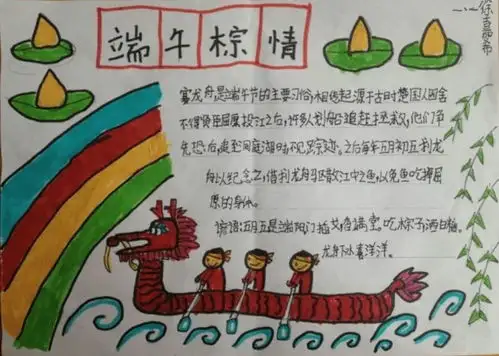 端午棕情
赛龙舟,是端午节的主要习俗,相传起源于古时楚国人因舍
不得贤臣屈原投江之后,许多人划船追赶拯救,他们争
先恐后,追至洞庭湖时不见踪迹。之后每年五月初五划龙
舟以纪念之,借划龙舟驱散江中之鱼,以免鱼吃掉屈
原的身体。
谚语:五月五是端阳,门插艾,香满堂,吃粽子,洒白糖。
龙舟下水喜洋洋。